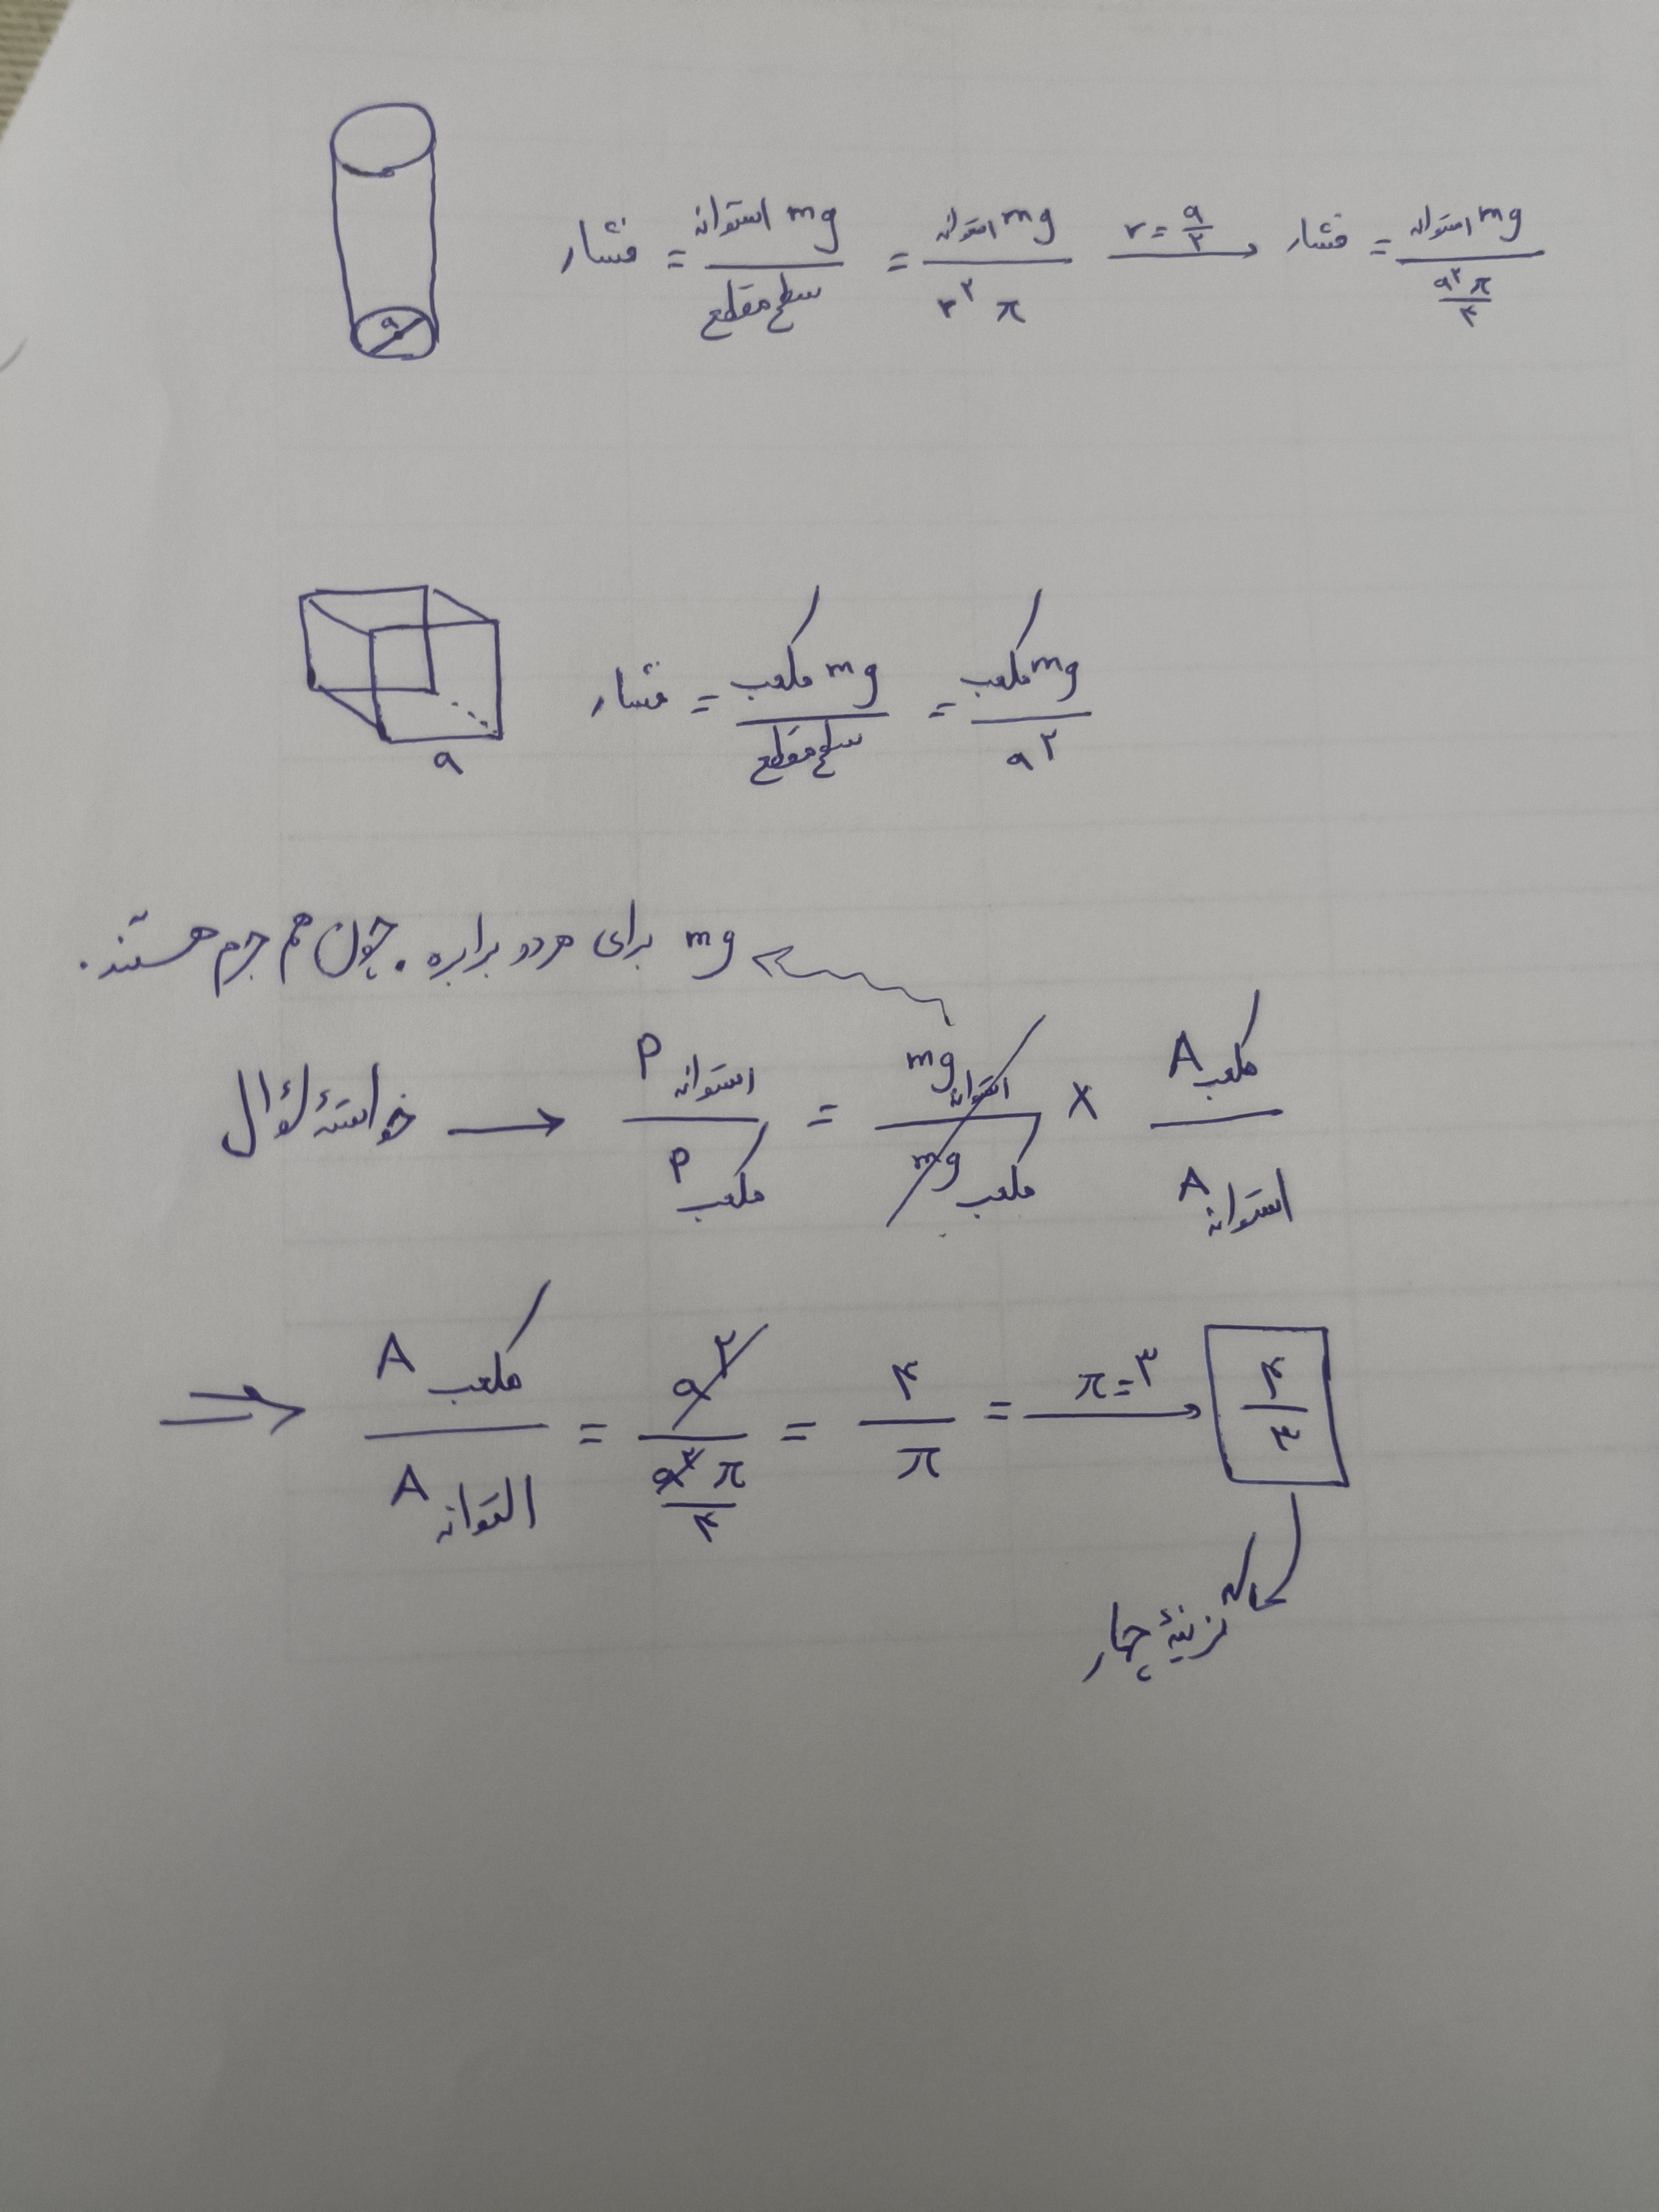 فشار = mg استوانه / سطح مقطع = mg استوانه / r² π → r = a/۲ → فشار = mg استوانه / (a² π / ۴)
a
فشار = mg مکعب / سطح مقطع = mg مکعب / a²
a
mg برای هر دو برابره. چون هم جرم هستند.
خواستهٔ سؤال → P استوانه / P مکعب = mg استوانه / mg مکعب × A مکعب / A استوانه
⇒ A مکعب / A استوانه = a² / (a² π / ۴) = ۴ / π = π = ۳ → ۴ / ۳
گزینهٔ چهار